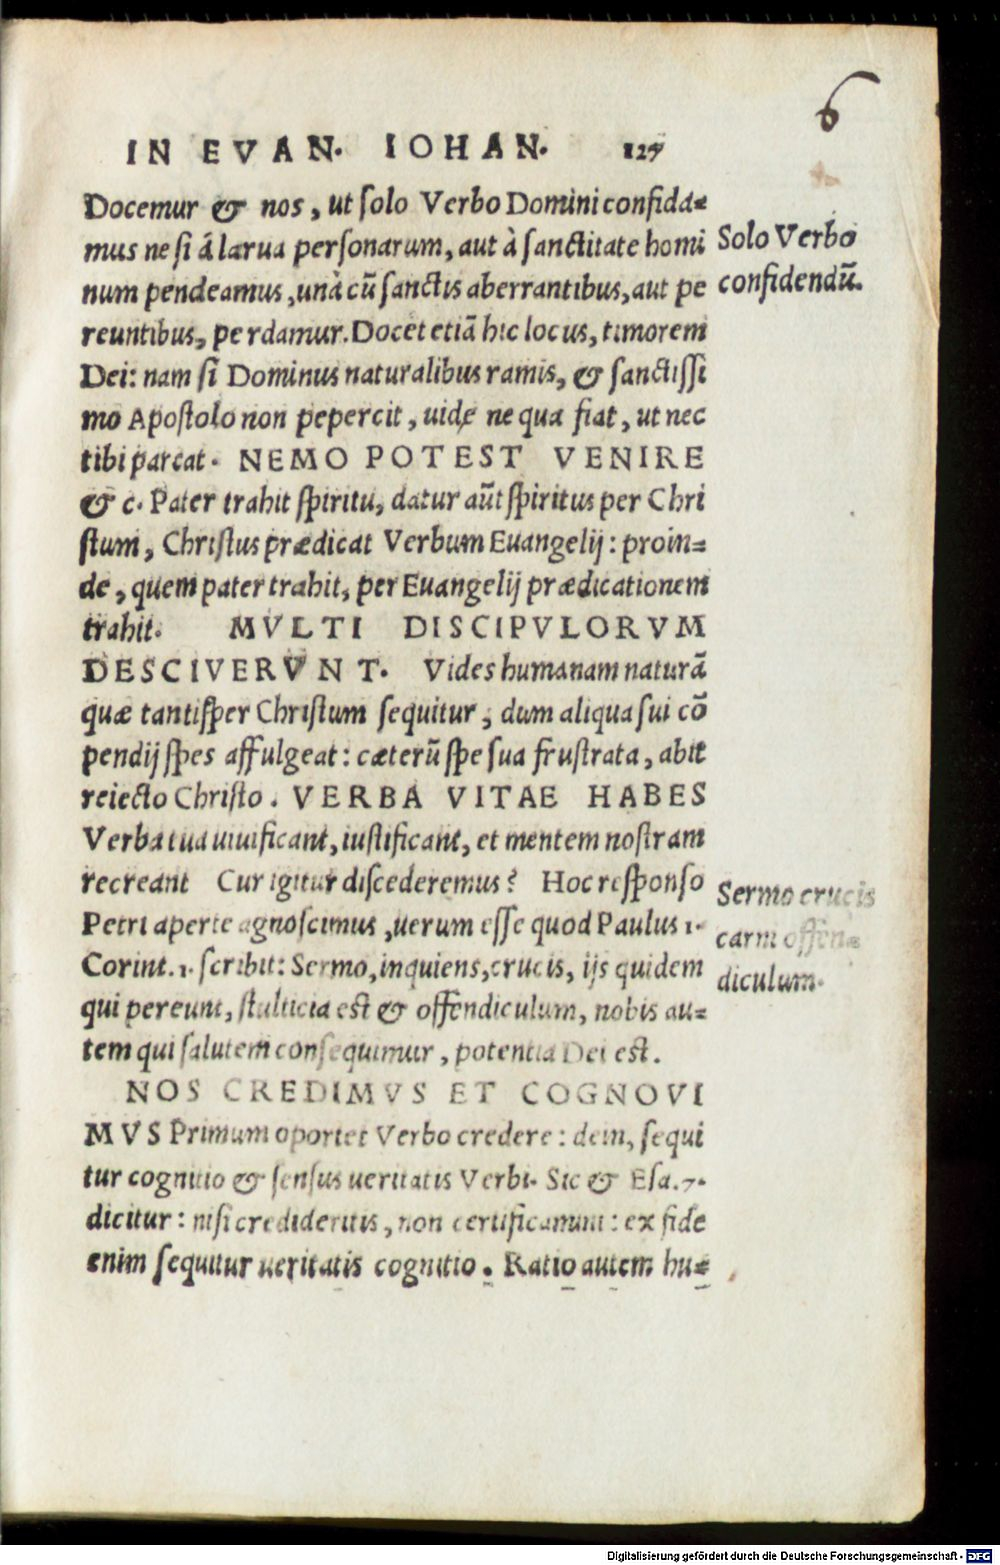 6
IN EVAN. IOHAN. 127
Docemur & nos, ut solo Verbo Domini confida=
mus ne si á larua personarum, aut à sanctitate homi
num pendeamus, unà cũ sanctis aberrantibus, aut pe
reuntibus, perdamur. Docet etiã hic locus, timorem
Dei: nam si Dominus naturalibus ramis, & sanctissi
mo Apostolo non pepercit, uide ne qua fiat, ut nec
tibi parcat. NEMO POTEST VENIRE
& c. Pater trahit spiritu, datur aũt spiritus per Chri
stum, Christus prædicat Verbum Euangelij: proin=
de, quem pater trahit, per Euangelij prædicationem
trahit. MVLTI DISCIPVLORVM
DESCIVERVNT. Vides humanam naturã
quæ tantisper Christum sequitur, dum aliqua sui cõ
pendij spes affulgeat: cæterũ spe sua frustrata, abit
reiecto Christo. VERBA VITAE HABES
Verba tua uiuificant, iustificant, et mentem nostram
recreant Cur igitur discederemus? Hoc responso
Petri aperte agnoscimus, uerum esse quod Paulus 1.
Corint. 1. scribit: Sermo, inquiens, crucis, ijs quidem
qui pereunt, stulticia est & offendiculum, nobis au=
tem qui salutem consequimur, potentia Dei est.
NOS CREDIMVS ET COGNOVI
MVS Primum oportet Verbo credere: dein, sequi
tur cognitio & sensus ueritatis Verbi. Sic & Esa. 7.
dicitur: nisi credideritis, non certificamini: ex fide
enim sequitur ueritatis cognitio. Ratio autem hu=
Solo Verbo
confidendũ.
Sermo crucis
carni offen=
diculum.
Digitalisierung gefördert durch die Deutsche Forschungsgemeinschaft - DFG